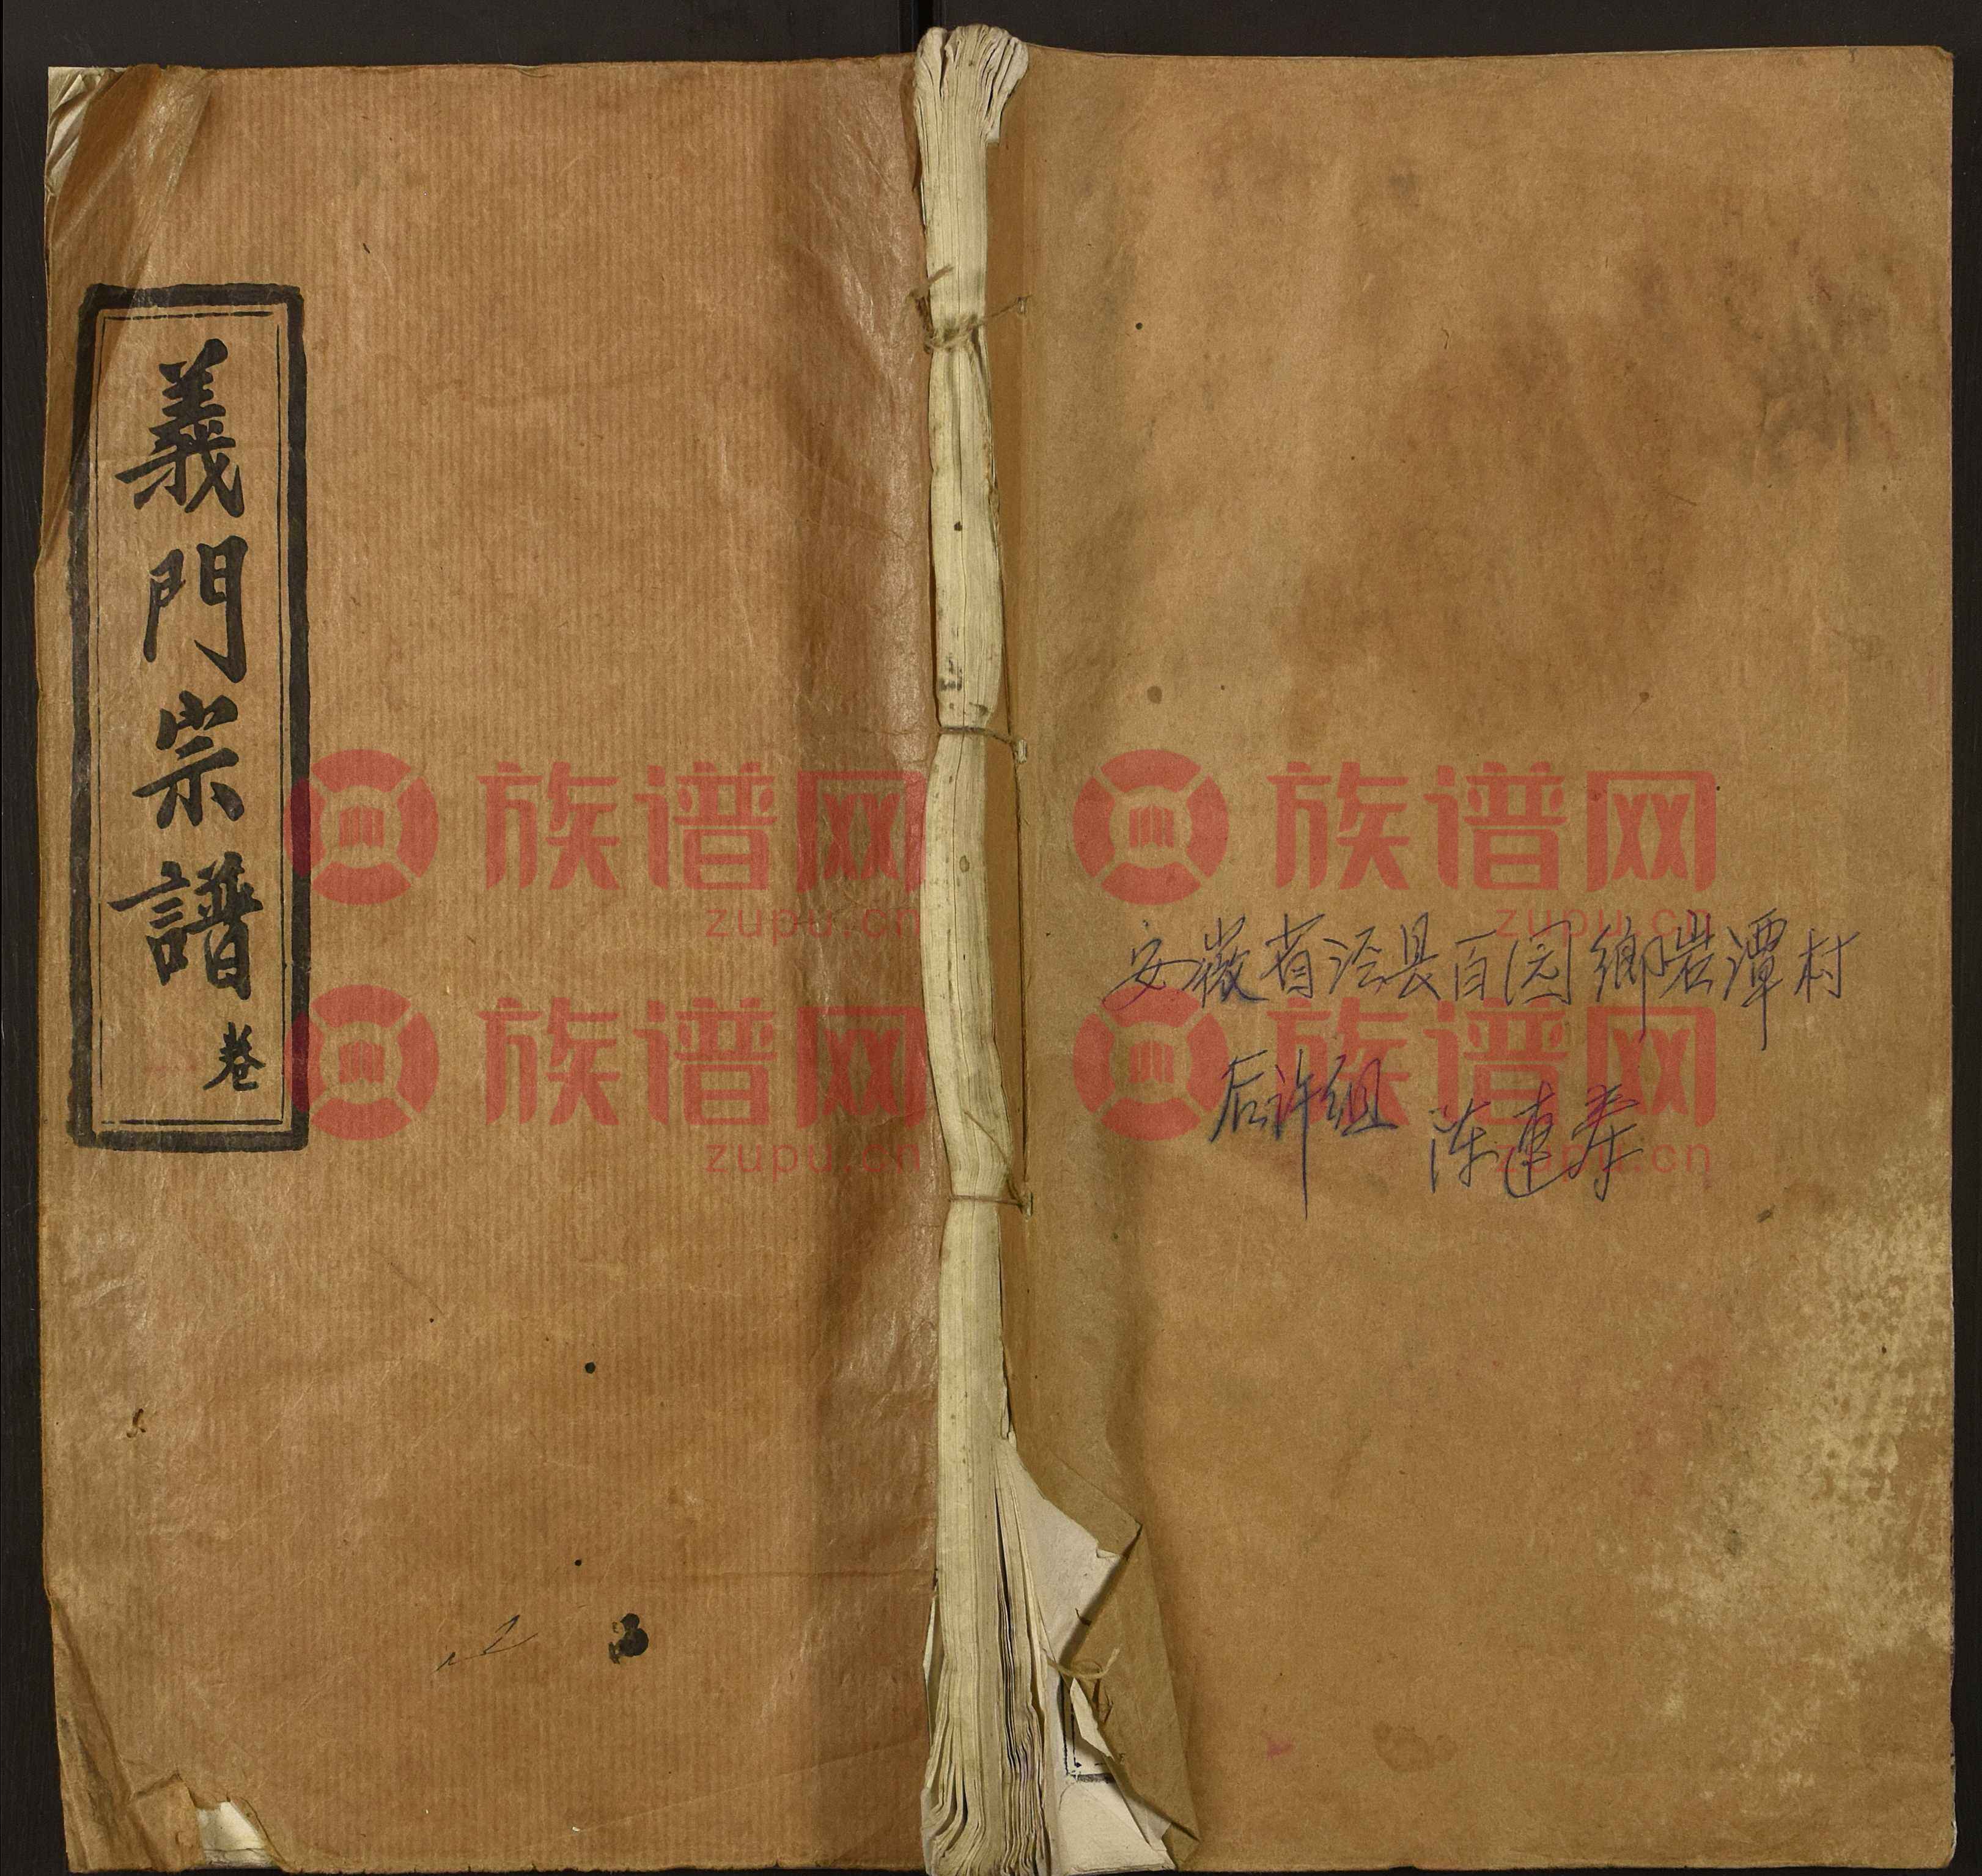 義門宗譜
卷
族谱网
zupu.cn
族谱网
zupu.cn
族谱网
zupu.cn
族谱网
zupu.cn
安徽省泾县百园鄉岩潭村
后许组 陈连寿